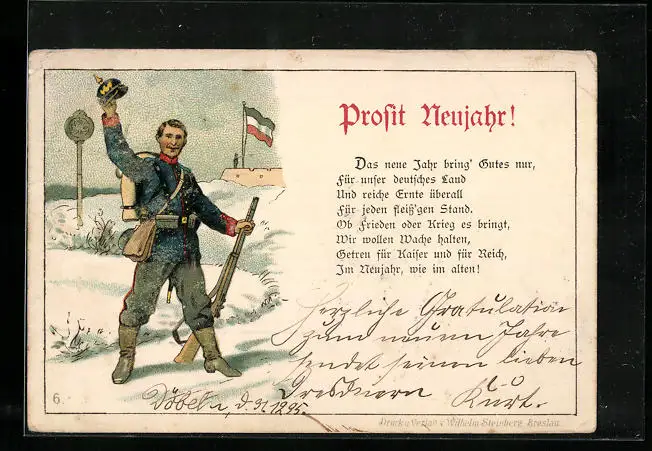 Prosit Neujahr!
Das neue Jahr bring' Gutes nur,
Für unser deutsches Land
Und reiche Ernte überall
Für jeden fleiß'gen Stand.
Ob Frieden oder Krieg es bringt,
Wir wollen Wache halten,
Getreu für Kaiser und für Reich,
Im Neujahr, wie im alten!
Herzliche Gratulation
zum neuen Jahre
sendet seinen lieben
Dresdnern Kurt.
Döbeln, d. 31. 12. 95.
6.
Druck u. Verlag v. Wilhelm Steinberg, Breslau.